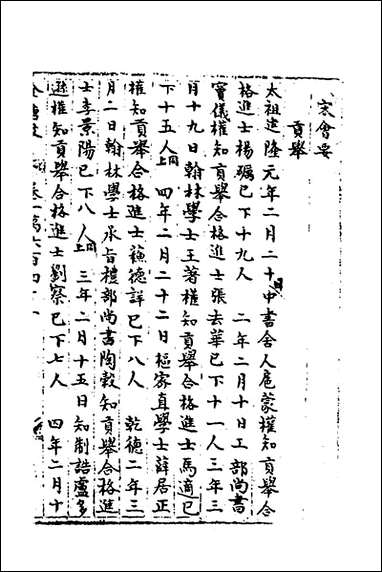 宋會要
貢舉
太祖建隆元年二月二十日中書舍人扈蒙權知貢舉合
格進士楊礪已下十九人 二年二月十日工部尚書
竇儀權知貢舉合格進士張去華已下十一人三年三
月十九日翰林學士王著權知貢舉合格進士馬適已
下十五人 四年二月二十二日樞密直學士薛居正
權知貢舉合格進士蘇德詳已下八人 乾德二年三
月二日翰林學士承旨禮部尚書陶穀知貢舉合格進
士李景陽已下八人 三年二月十五日知制誥盧多
遜權知貢舉合格進士劉察已下七人 四年二月十